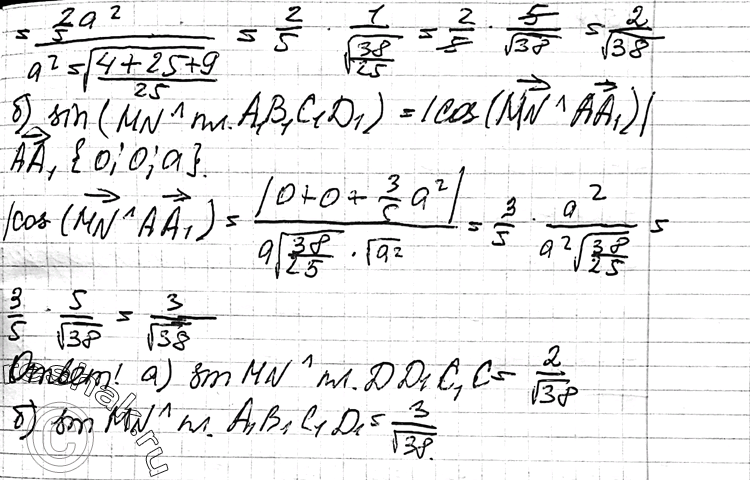 = \frac{\frac{2}{5}a^2}{a^2 = \sqrt{\frac{4+25+9}{25}}} = \frac{2}{5} \cdot \frac{1}{\sqrt{\frac{38}{25}}} = \frac{2}{5} \cdot \frac{5}{\sqrt{38}} = \frac{2}{\sqrt{38}}
б) sin(MN ^ пл. A₁B₁C₁D₁) = |cos(\overrightarrow{MN} ^ \overrightarrow{AA₁})|
\overrightarrow{AA₁} {0; 0; a}.
|cos(\overrightarrow{MN} ^ \overrightarrow{AA₁}) = \frac{|0+0+\frac{3}{5}a^2|}{a\sqrt{\frac{38}{25}} \cdot \sqrt{a^2}} = \frac{3}{5} \cdot \frac{a^2}{a^2\sqrt{\frac{38}{25}}} =
\frac{3}{5} \cdot \frac{5}{\sqrt{38}} = \frac{3}{\sqrt{38}}
Ответ: а) sin MN ^ пл. DD₁C₁C = \frac{2}{\sqrt{38}}
б) sin MN ^ пл. A₁B₁C₁D₁ = \frac{3}{\sqrt{38}}.